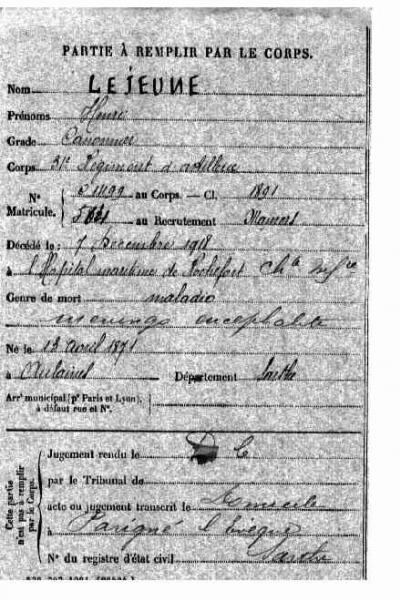 PARTIE À REMPLIR PAR LE CORPS.
Nom LEJEUNE
Prénoms Henri
Grade Canonnier
Corps 31e Régiment d'artillerie
Nº Matricule. au Corps. — Cl. 1891
au Recrutement Mamers
Décédé le : 7 Décembre 1918
à l'Hôpital maritime de Rochefort Chte Infre
Genre de mort maladie
meningo encephalite
Né le 13 avril 1871
à Aulaines Département Sarthe
Arrt municipal (pr Paris et Lyon), à défaut rue et Nº.
Cette partie n'est pas à remplir par le Corps.
Jugement rendu le
par le Tribunal de
acte ou jugement transcrit le
à Parigné l'Evêque
Nº du registre d'état civil Sarthe